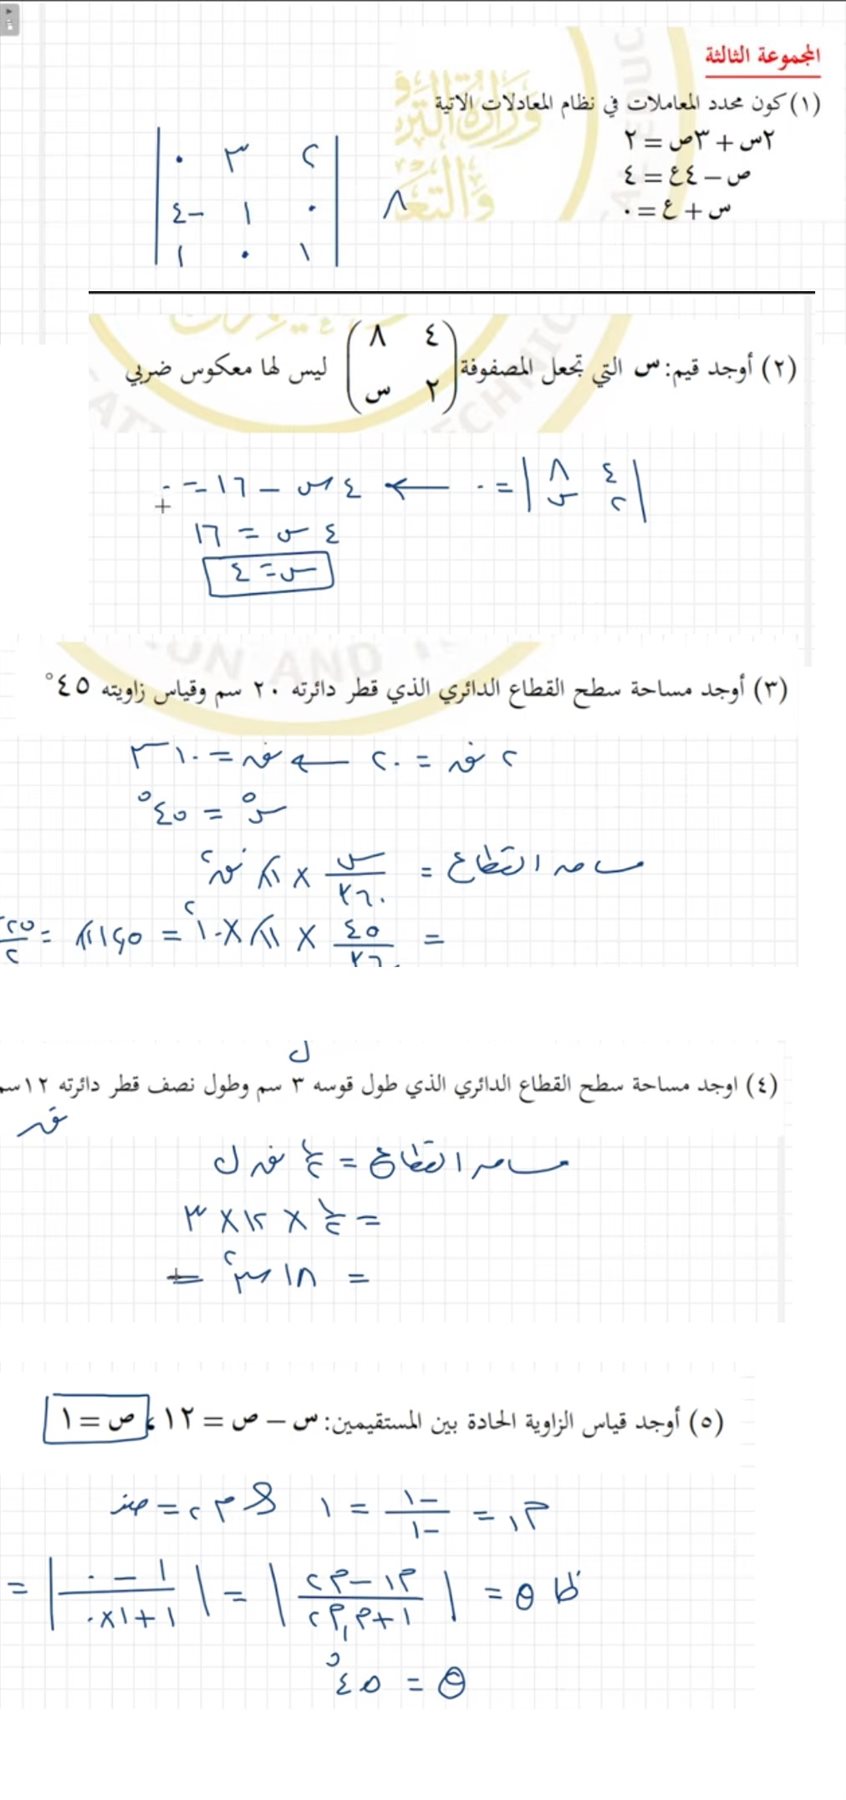 المجموعة الثالثة
(١) كون محدد المعاملات في نظام المعادلات الاتية
٢س + ٣ص = ٢
ص − ٤ع = ٤
س + ع = ٠
٢ ٣ ٠
٠ ١ −٤
١ ٠ ١
(٢) أوجد قيم: س التي تجعل المصفوفة (٤ ٨ ٢ س) ليس لها معكوس ضربي
|٤ ٨ ٢ س| = ٠ ← ٤س − ١٦ = ٠
٤س = ١٦
س = ٤
(٣) أوجد مساحة سطح القطاع الدائري الذي قطر دائرته ٢٠ سم وقياس زاويته ٤٥°
٢ نق = ٢٠ ← نق = ١٠ سم
س° = ٤٥°
مساحة القطاع = س/٣٦٠ × π نق²
= ٤٥/٣٦٠ × π × ١٠² = ١٢,٥π = ٢٥/٢
(٤) اوجد مساحة سطح القطاع الدائري الذي طول قوسه ٣ سم وطول نصف قطر دائرته ١٢سم
ل
نق
مساحة القطاع = ١/٢ نق ل
= ١/٢ × ١٢ × ٣
= ١٨ سم²
(٥) أوجد قياس الزاوية الحادة بين المستقيمين: س − ص = ١٢ ، ص = ١
م١ = −١/−١ = ١ & م٢ = صفر
ظا θ = |م١ − م٢ / ١ + م١م٢| = |١ − ٠ / ١ + ١×٠| =
θ = ٤٥°